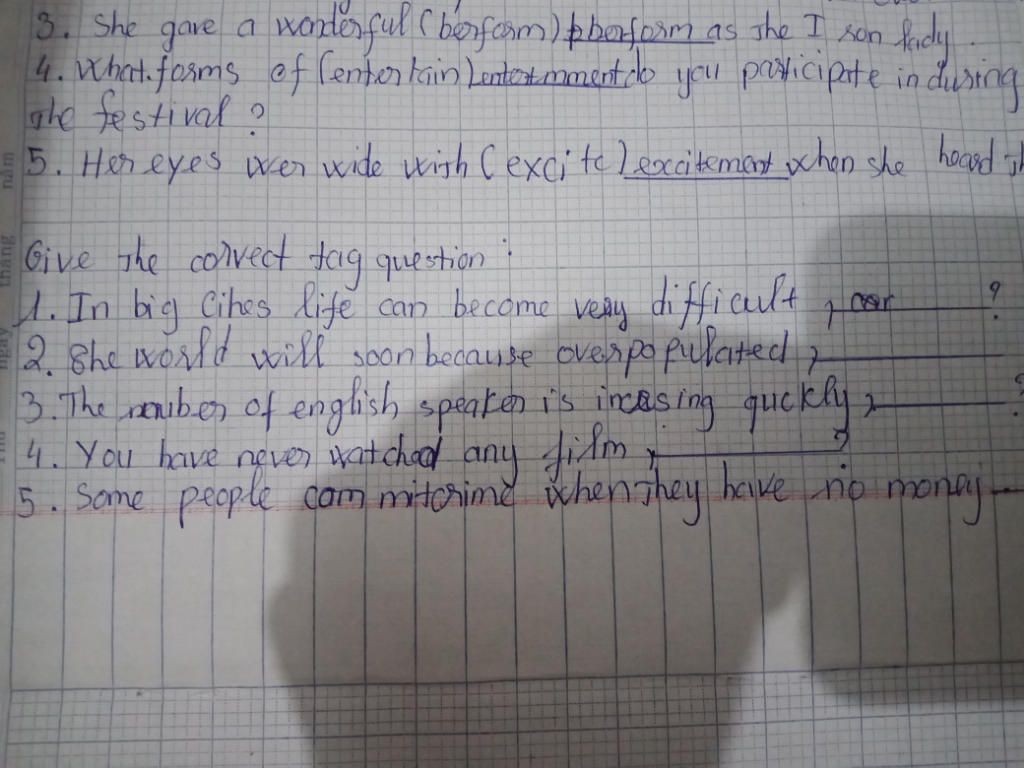 3. She gave a wonderful (berform) pberform as the I ron lady.
4. What forms of (entertain) entertmment do you participate in during
the festival ?
5. Her eyes wer wide with (excite) excitement when she heard th
Give the correct tag question :
1. In big cihes life can become very difficult, ?
2. She world will soon because overpopulated,
3. The number of english speaker is incresing quckly, ?
4. You have never watched any film, ?
5. Some people commitcrime when they have no money
năm
tháng
ngày
Thứ